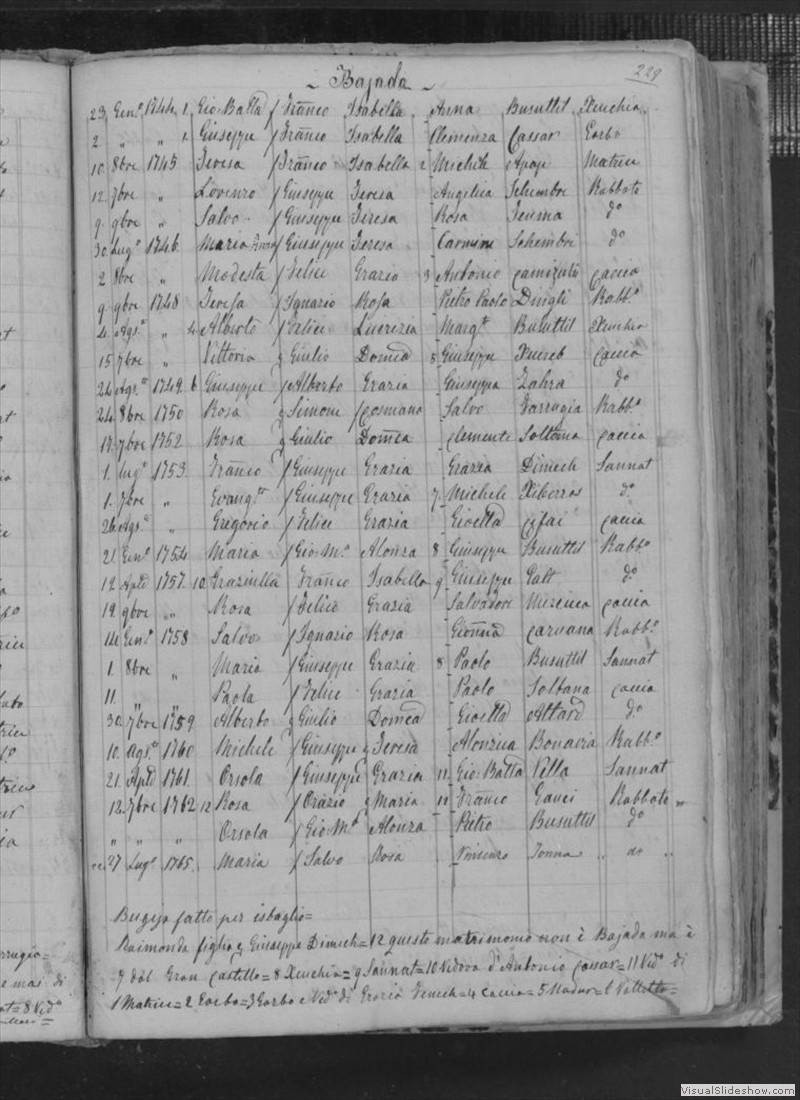 229
~ Bajada ~
23 Gen.º 1744 1 Gio Batta f Franco Isabella Anna Busuttil Xeuchia
2 " " 1 Giuseppe f Franco Isabella Clemenza Cassar Garbo
10 8bre 1745 Teresa f Franco Isabella 2 Michele Apap Matrice
12 7bre " Lorenzo f Giuseppe Teresa Angelica Schembri Rabbato
9 9bre " Salvo f Giuseppe Teresa Rosa dº
30 Lugº 1746 Maria f Giuseppe Teresa Carmine Schembri dº
2 8bre " Modesta f Felice Grazia 3 Antonio Camizuli Caccia
9 9bre 1748 Teresa f Ignazio Rosa Pietro Paolo Dingli Rabbº
4 Agsº " 4 Alberto f Felice Lucrezia Margta Busuttil Xeuchia
15 7bre " Vittoria f Giulio Domca 5 Giuseppe Xuireb Caccia
24 Agsº 1749 6 Giuseppe f Alberto Grazia Giuseppa Zahra dº
24 8bre 1750 Rosa f Simone Cosmana Salvo Farrugia Rabbº
17 7bre 1752 Rosa f Giulio Domca Clemente Soltana Caccia
1 Lugº 1753 Franco f Giuseppe Grazia Grazia Dimech Sannat
1 7bre " Evangta f Giuseppe Grazia 7 Michele Xiberras dº
26 Agsº " Gregorio f Felice Grazia Gioetta Cefai Caccia
21 Genº 1754 Maria f Gio Mª Alonza 8 Giuseppe Busuttil Rabbº
12 Aple 1757 10 Graziulla Franco Isabella 9 Giuseppe Galt dº
19 9bre " Rosa f Felice Grazia Salvadore Mercieca Caccia
14 Genº 1758 Salvo f Ignazio Rosa Gionna Caruana Rabbº
1 8bre " Maria f Giuseppe Grazia 8 Paolo Busuttil Sannat
11 " " Paola f Felice Grazia Paolo Soltana Caccia
30 7bre 1759 Alberto f Giulio Domca Gioetta Attard dº
10 Agsº 1760 Michele f Giuseppe Teresa Alonzica Bonavia Rabbº
21 Aple 1761 Orsola f Giuseppe Grazia 11 Gio Batta Vella Sannat
12 7bre 1762 12 Rosa f Orazio Maria 12 Franco Gauci Rabbato "
" " " Orsola f Gio Mª Alonza Pietro Busuttil dº
27 Lugº 1765 Maria f Salvo Rosa Vincenzo Tonna " do "
Bugeja fatto per isbaglio=
Raimonda figlia Giuseppe Dimech=12 questo matrimonio non è Bajada ma è
7 dal Gran Castello=8 Xeuchia=9 Sannat=10 Vedova d'Antonio Cassar=11 Vedº di
1 Matrice=2 Garbo=3 Garbo e Vedº di Grazia =4 Caccia=5 Nadur=6
VisualSlideshow.com